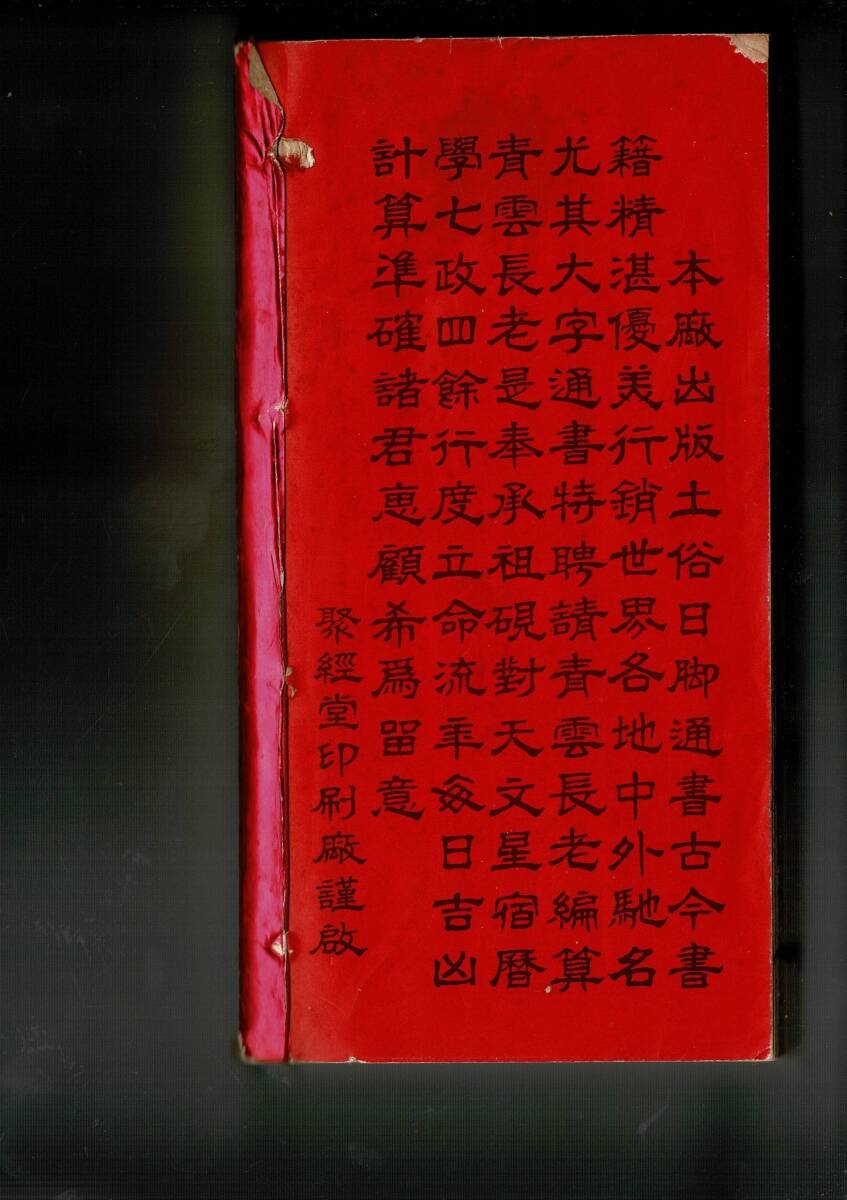 本廠出版土俗日脚通書古今書
籍精湛優美行銷世界各地中外馳名
尤其大字通書特聘請青雲長老編算
青雲長老是奉承祖硯對天文星宿曆
學七政四餘行度立命流年每日吉凶
計算準確諸君惠顧希為留意
聚經堂印刷廠謹啟